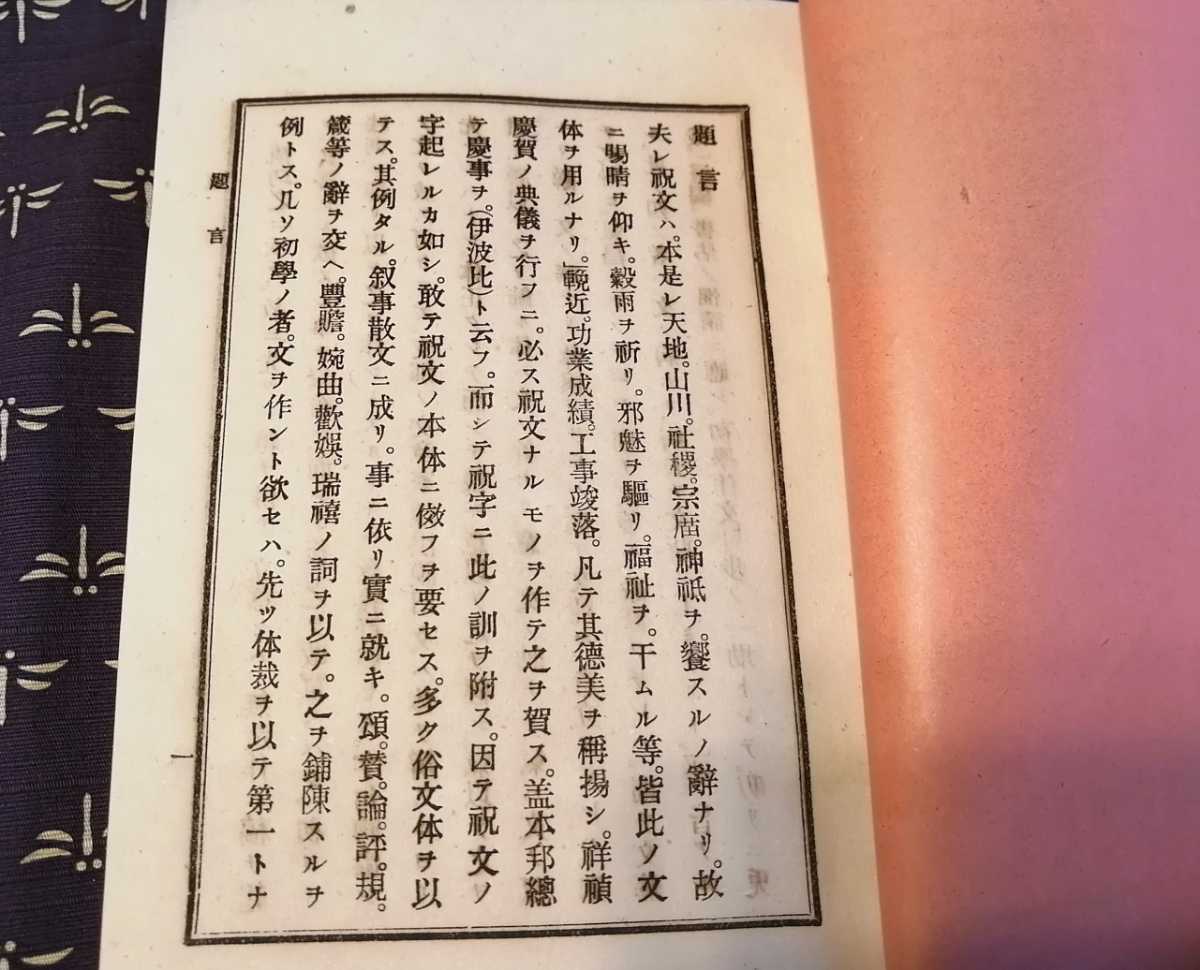 題言
夫レ祝文ハ。本是レ天地。山川。社稷。宗庿。神祗ヲ。饗スルノ辭ナリ。故
ニ暘晴ヲ仰キ。穀雨ヲ祈リ。邪魅ヲ驅リ。福祉ヲ。干ムル等。皆此ノ文
体ヲ用ルナリ。輓近。功業成績。工事竣落。凡テ其德美ヲ稱揚シ。祥禎
慶賀ノ典儀ヲ行フニ。必ス祝文ナルモノヲ作テ之ヲ賀ス。盖本邦總
テ慶事ヲ。(伊波比)ト云フ。而シテ祝字ニ此ノ訓ヲ附ス。因テ祝文ノ
字起レルカ如シ。敢テ祝文ノ本体ニ傚フヲ要セス。多ク俗文体ヲ以
テス。其例タル。叙事散文ニ成リ。事ニ依リ實ニ就キ。頌。賛。論。評。規。
箴等ノ辭ヲ交ヘ。豐贍。婉曲。歡娯。瑞禧ノ詞ヲ以テ。之ヲ鋪陳スルヲ
例トス。凡ソ初學ノ者。文ヲ作ント欲セハ。先ツ体裁ヲ以テ第一トナ
題言
一